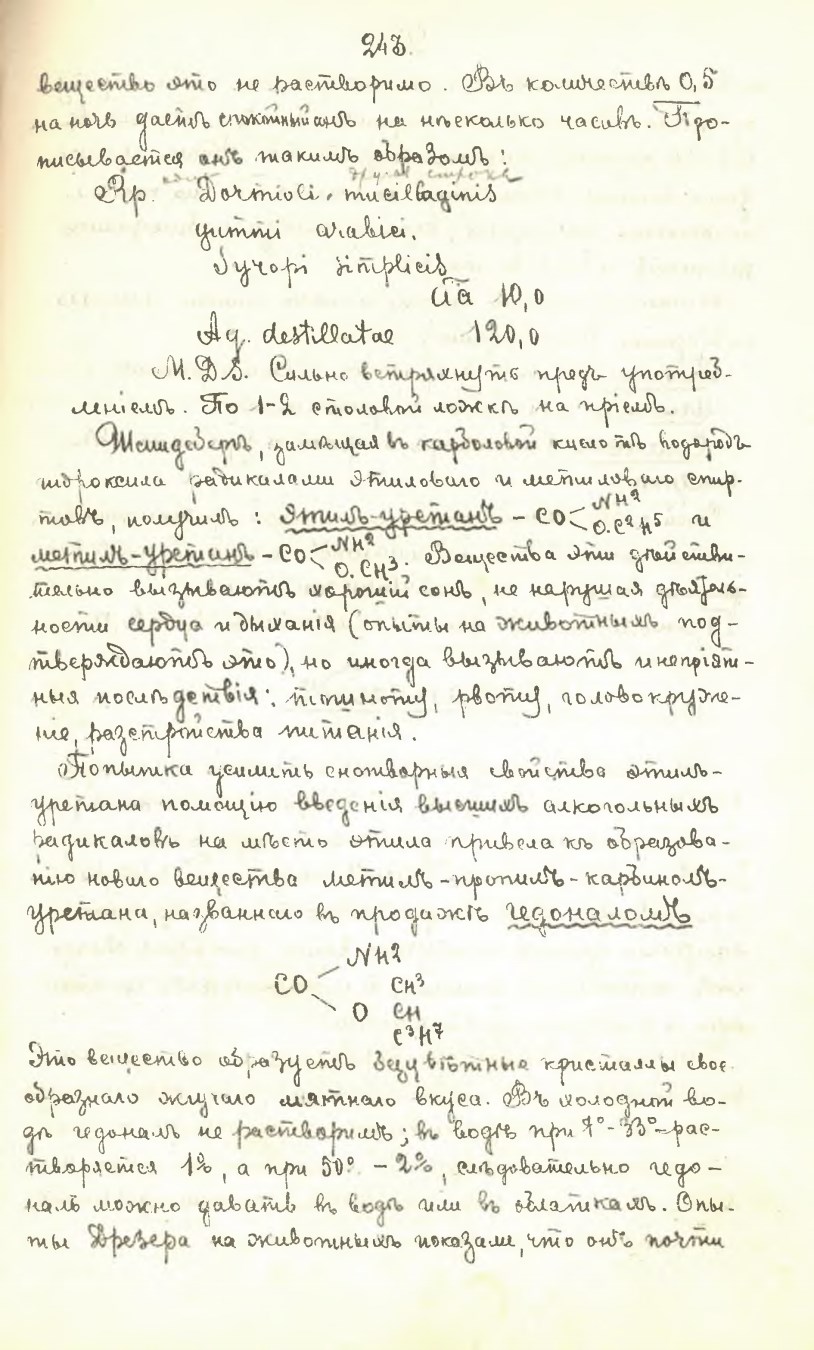 243.
вещество это не растворимо. Въ количествѣ 0,5
на ночь даетъ спокойный сонъ на нѣсколько часовъ. Про-
писывается онъ такимъ образомъ:
Rp. Dormioli, mucillaginis
gummi arabici.
Syrupi simplicis
āā 10,0
Aq. destillatae 120,0
M.D.S. Сильно встряхнуть предъ употреб-
леніемъ. По 1-2 столовой ложкѣ на пріемъ.
Шмидебергъ, замѣщая въ карболовой кислотѣ водородъ
гидроксила радикалами этиловаго и метиловаго спир-
товъ, получилъ: этилъ-уретанъ – CO< NH² O.C²H⁵ и
метилъ-уретанъ – CO< NH² O.CH³. Вещества эти дѣйстви-
тельно вызываютъ хорошій сонъ, не нарушая дѣятель-
ности сердца и дыханія (опыты на животныхъ под-
тверждаютъ это), но иногда вызываютъ и непріят-
ныя послѣдствія: тошноту, рвоту, головокруже-
ніе, разстройства питанія.
Попытка усилить снотворныя свойства этилъ-
уретана помощію введенія высшихъ алкогольныхъ
радикаловъ на мѣсто этила привела къ образова-
нію новаго вещества метилъ-пропилъ-карбинолъ-
уретана, названнаго въ продажѣ гедоналомъ
NH²
CO CH³
O CH
C³H⁷
Это вещество образуетъ безцвѣтные кристаллы свое
образнаго жгучаго мятнаго вкуса. Въ холодной во-
дѣ гедоналъ не растворимъ; въ водѣ при 7°-33°-рас-
творяется 1%, а при 50° – 2%, слѣдовательно гедо-
налъ можно давать въ водѣ или въ облаткахъ. Опы-
ты Дрезера на животныхъ показали, что онъ почти